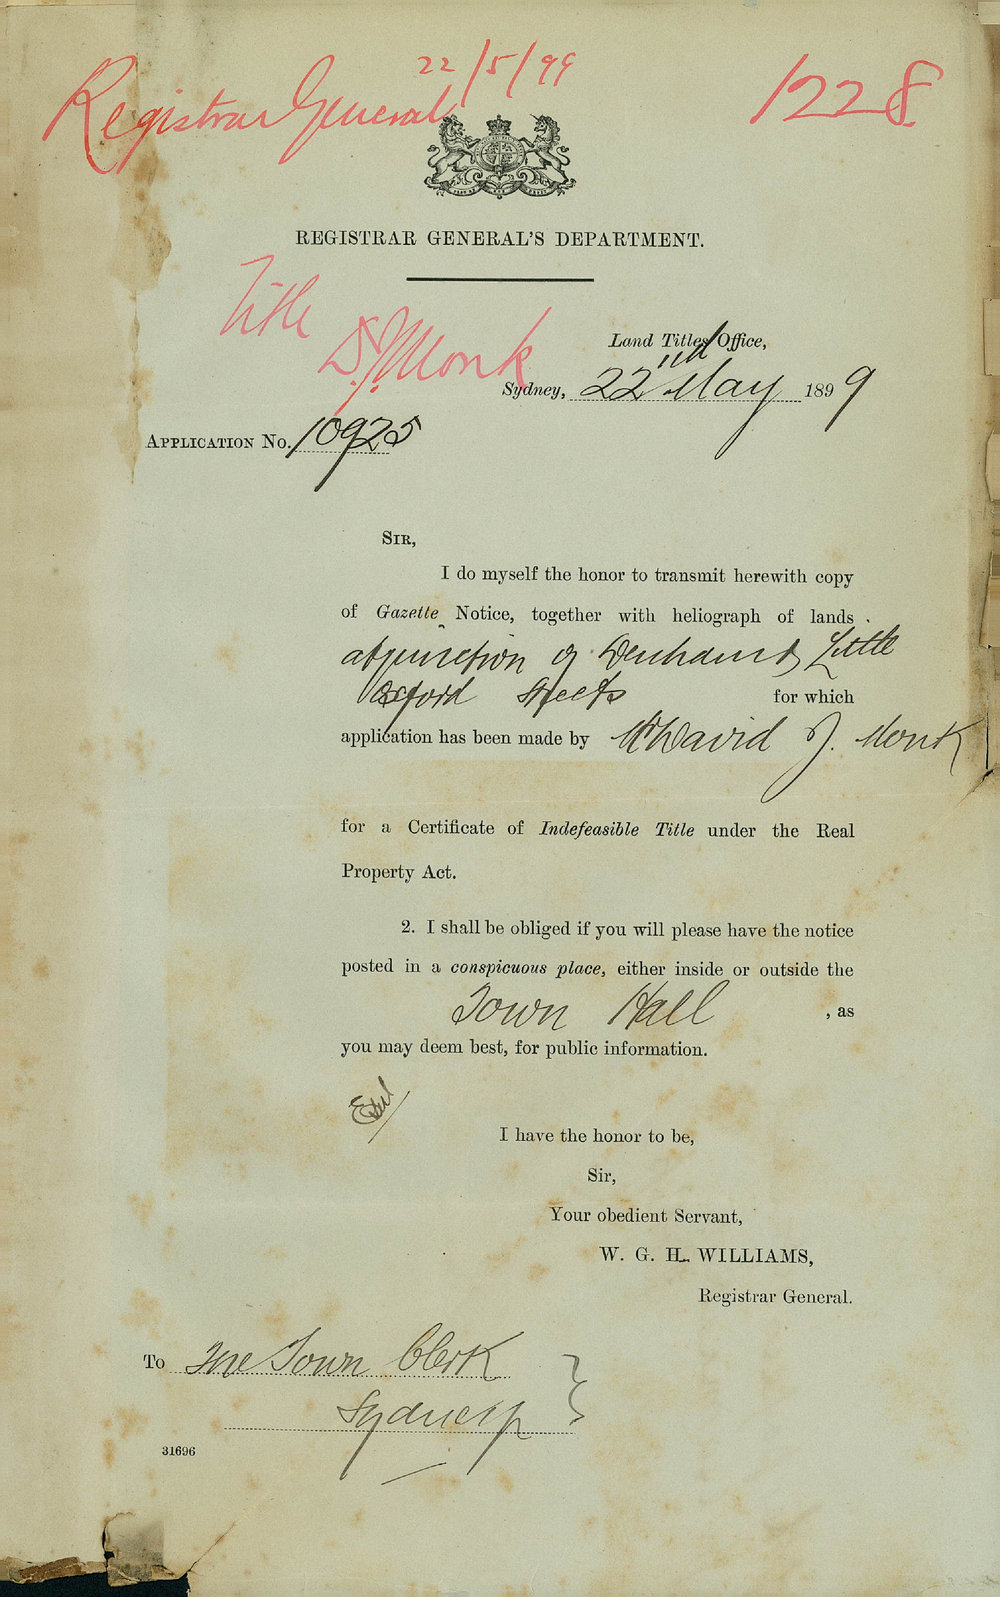 22/5/99
Registrar General
1228
REGISTRAR GENERAL'S DEPARTMENT.
Title
D. J. Monk
Land Titles Office,
Sydney, 22nd May 1899
APPLICATION No. 10925
SIR,
I do myself the honor to transmit herewith copy
of Gazette Notice, together with heliograph of lands
at junction of Denham & Little
Oxford Streets for which
application has been made by Mr David J. Monk
for a Certificate of Indefeasible Title under the Real
Property Act.
2. I shall be obliged if you will please have the notice
posted in a conspicuous place, either inside or outside the
Town Hall , as
you may deem best, for public information.
I have the honor to be,
Sir,
Your obedient Servant,
W. G. H. WILLIAMS,
Registrar General.
To The Town Clerk
Sydney
31696